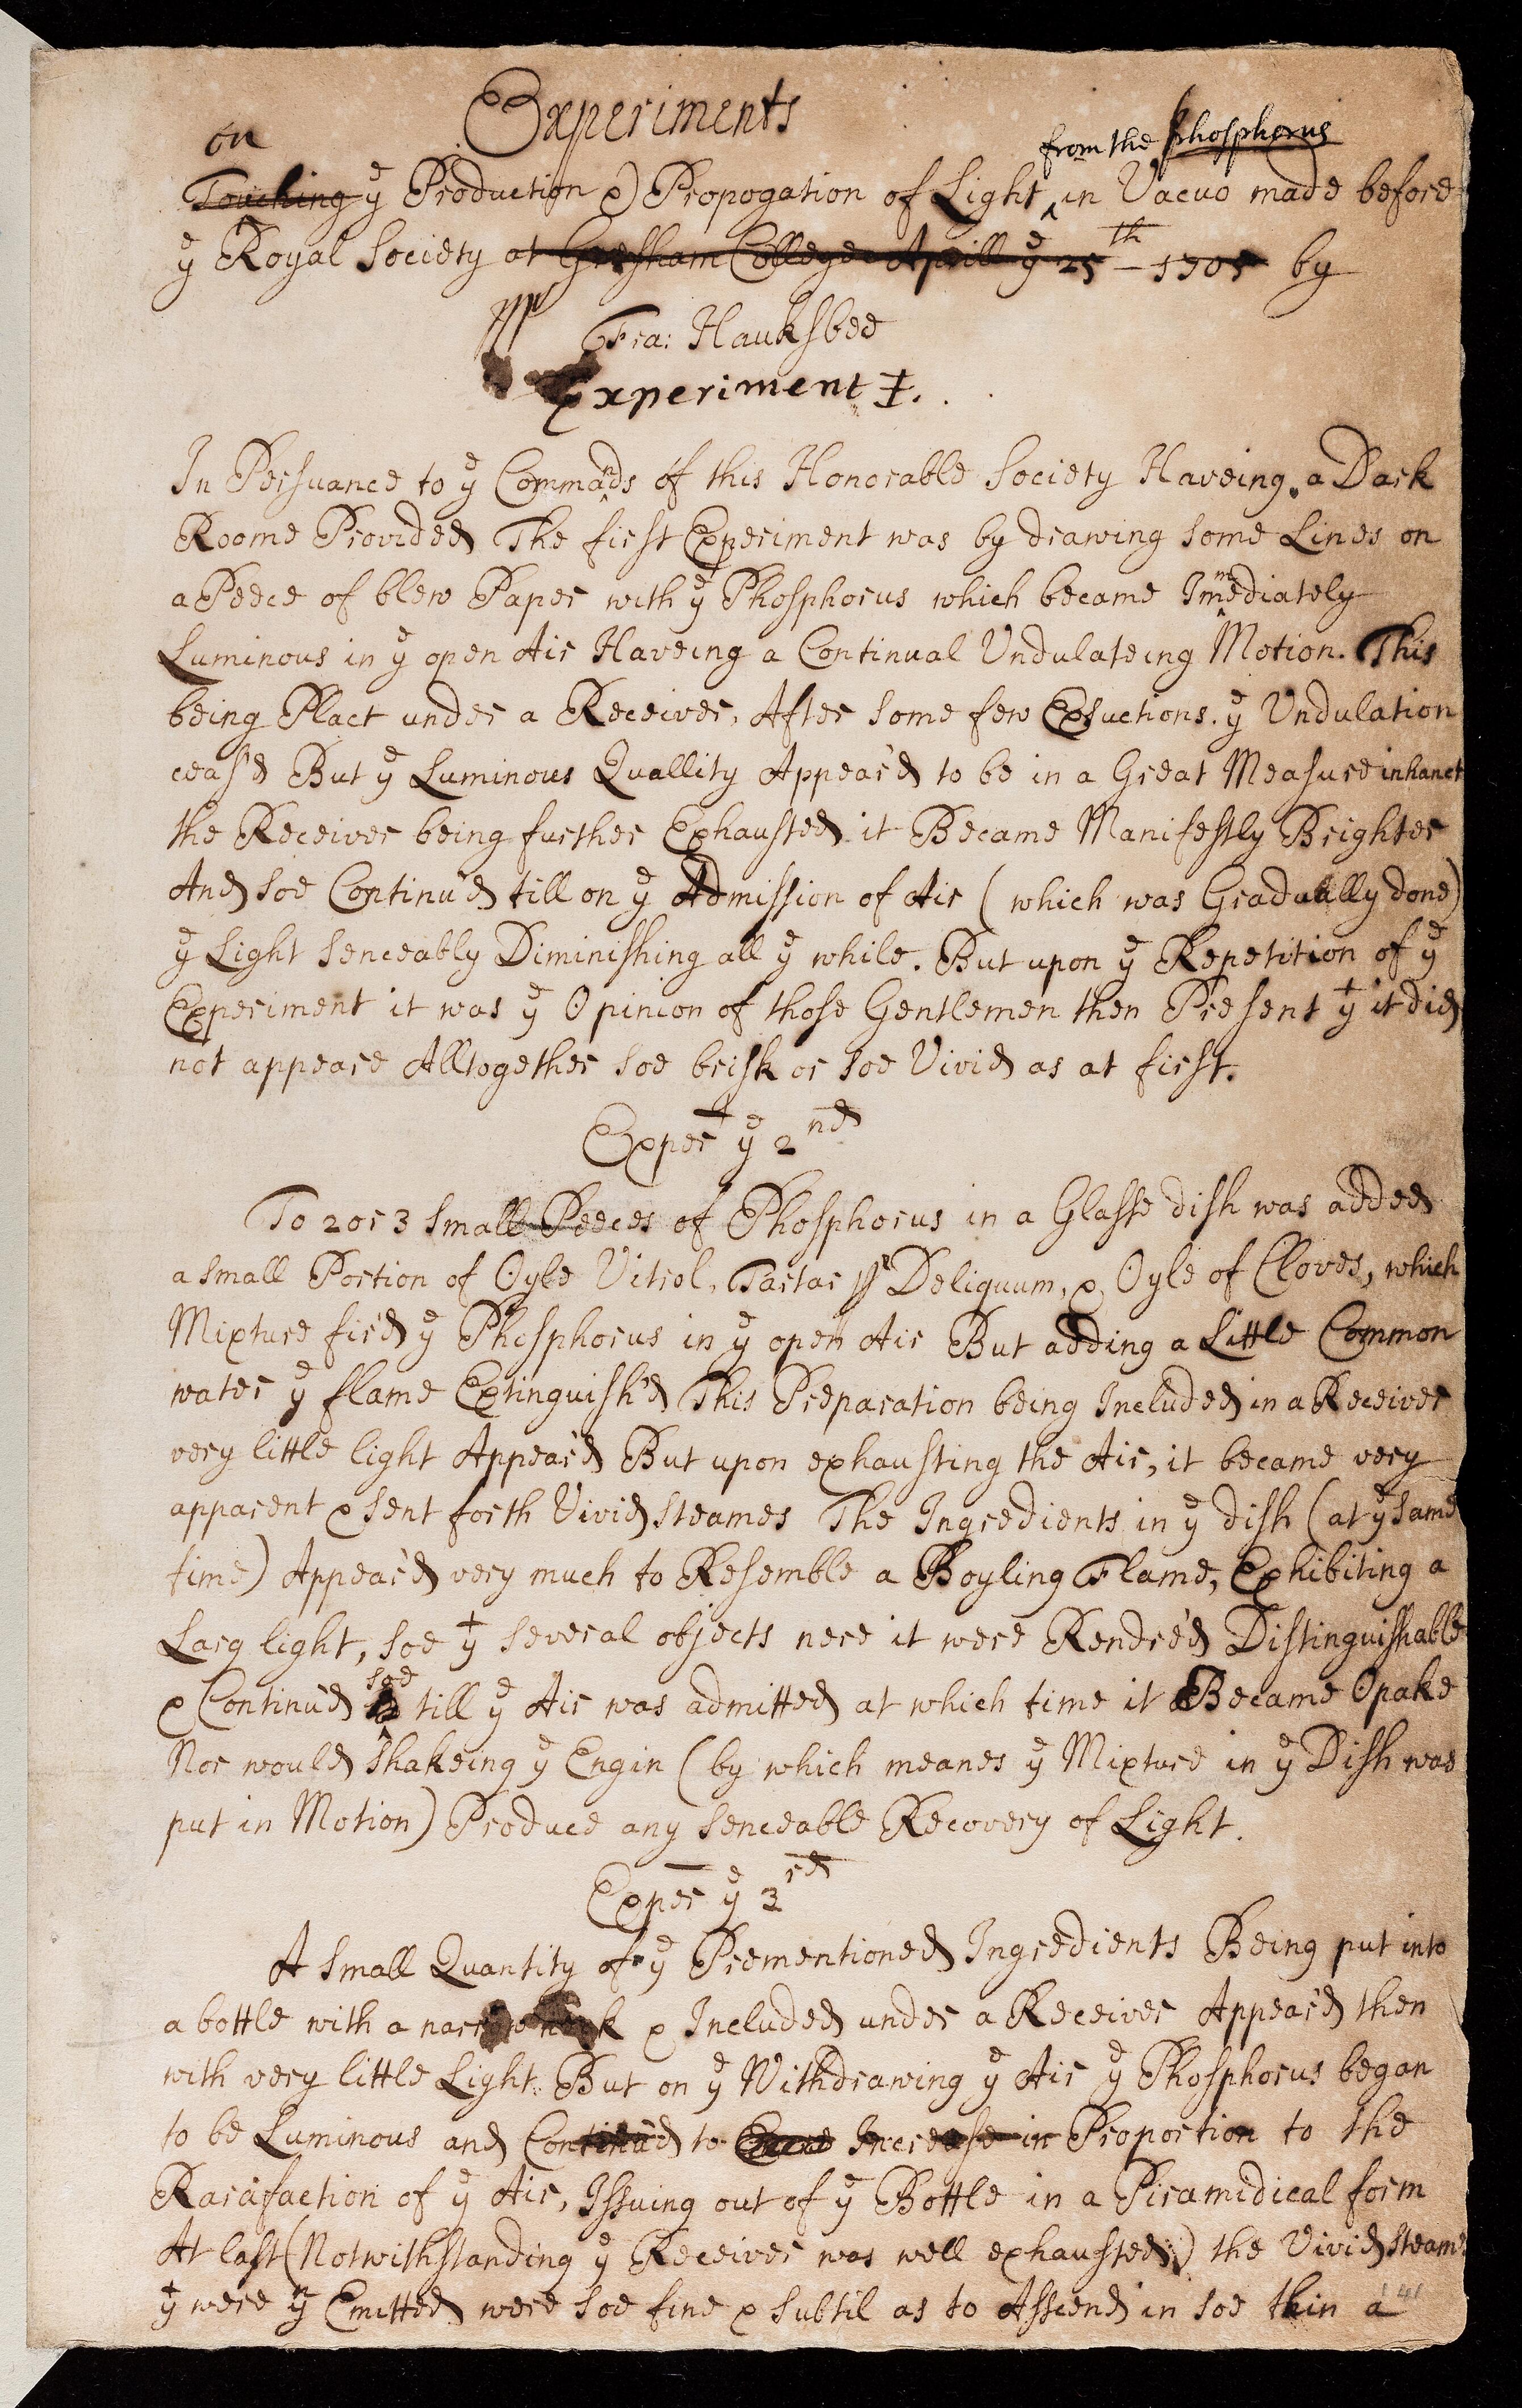 Experiments
on from the phosphorus
Touching yͤ Production & Propogation of Light ‸ in Vacuo made before
yͤ Royal Society at Gresham Colledge Aprill yͤ 25th - 1705 by
pr Fra: Hauksbee
Experiment I.
In Persuance to yͤ Commands of this Honorable Society Haveing a Dark
Roome Provided The first Experiment was by drawing some Lines on
a Peece of blew Paper with yͤ Phosphorus which became Immediately
Luminous in yͤ open Air Haveing a Continual Undulateing Motion. This
being Plact under a Receiver, After some few Exsuctions. yͤ Undulation
ceas'd But yͤ Luminous Quallity Appear'd to be in a Great Measure inhanct
the Receiver being further Exhausted it Became Manifestly Brighter
And soe Continu'd till on yͤ Admission of Air (which was Gradually done)
yͤ Light senceably Diminishing all yͤ while. But upon yͤ Repetition of yͤ
Experiment it was yͤ Opinion of those Gentlemen then Present yͭ it did
not appeare Alltogether soe brisk or soe Vivid as at first.
Exper yͤ 2nd
To 2 or 3 small Peeces of Phosphorus in a Glasse dish was added
a small Portion of Oyle Vitrol, Tartar pr Deliquum, & Oyle of Cloves, which
Mixture fir'd yͤ Phosphorus in yͤ open Air But adding a Little Common
water yͤ flame Extinguish'd This Preparation being Included in a Receiver
very little light Appear'd But upon exhausting the Air, it became very
apparent & sent forth Vivid steames The Ingredients in yͤ dish (at yͤ same
time) Appear'd very much to Resemble a Boyling Flame, Exhibiting a
Larg light, soe yͭ several objects nere it were Rendre'd Distinguishable
& Continu'd soe till yͤ Air was admitted at which time it Became Opake
Nor would shakeing yͤ Engin (by which meanes yͤ Mixture in yͤ Dish was
put in Motion) Produce any senceable Recovery of Light.
Exper yͤ 3rd
A small Quantity of yͤ Prementioned Ingredients Being put into
a bottle with a narrow neck & Included under a Receiver Appear'd then
with very little Light. But on yͤ Withdrawing yͤ Air yͤ Phosphorus began
to be Luminous and Continu'd to Increase in Proportion to the
Rarifaction of yͤ Air, Issuing out of yͤ Bottle in a Piramidical form
At last (Notwithstanding yͤ Receiver was well exhausted) the Vivid steams
yͭ were yͫ Emitted were soe fine & subtil as to Asscend in soe thin a